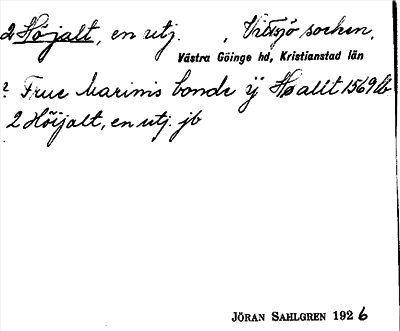 2 Höjalt, en utj. , Vittsjö socken,
Västra Göinge hd, Kristianstad län
? Frue Marinis bonde ÿ Høallt 1569 lb
2 Höijalt, en utj. jb
JÖRAN SAHLGREN 1926